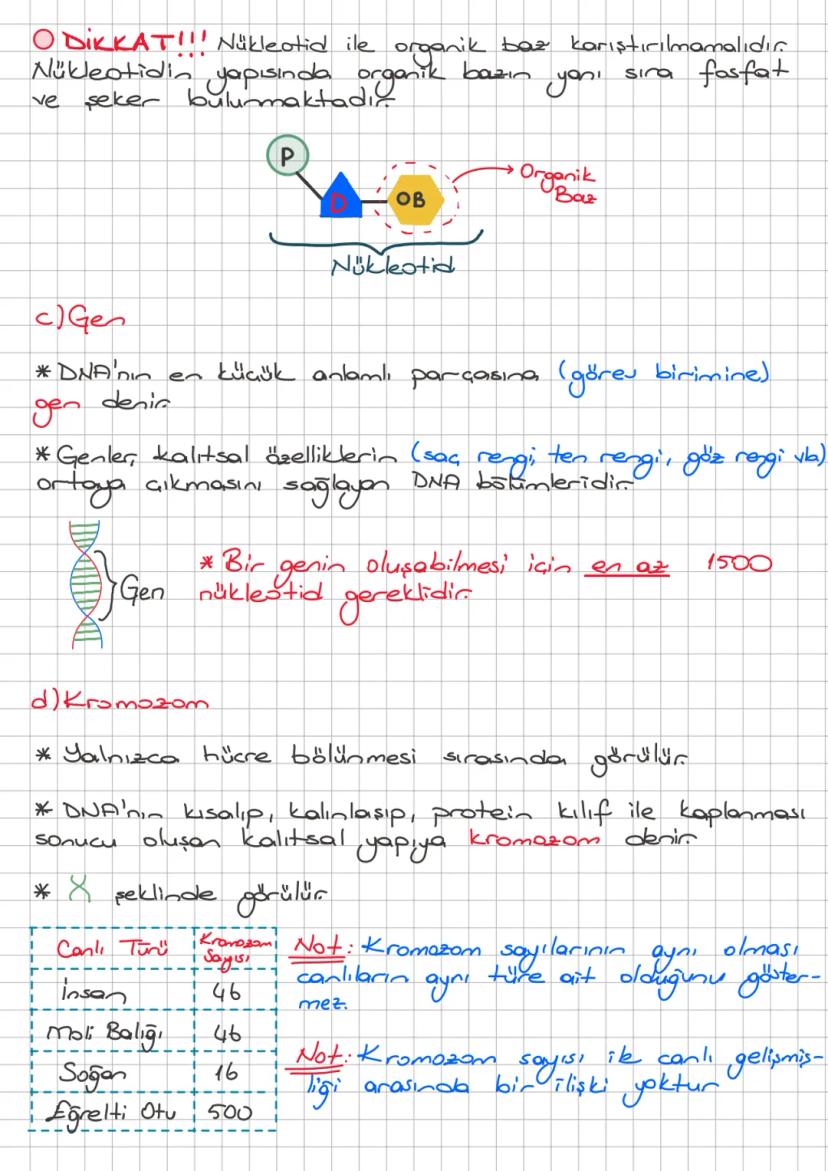 DİKKAT!!! Nükleotid ile organik baz karıştırılmamalıdır.
Nükleotidin yapısında organik bazın yanı sıra fosfat
ve şeker bulunmaktadır.
P
D
OB
Organik
Baz
Nükleotid
c) Gen
* DNA'nın en küçük anlamlı parçasına (görev birimine)
gen denir.
* Genler, kalıtsal özelliklerin (saç rengi, ten rengi, göz rengi vb)
ortaya çıkmasını sağlayan DNA bölümleridir.
Gen
* Bir genin oluşabilmesi için en az 1500
nükleotid gereklidir.
d) Kromozom
* Yalnızca hücre bölünmesi sırasında görülür.
* DNA'nın kısalıp, kalınlaşıp, protein kılıf ile kaplanması
sonucu oluşan kalıtsal yapıya kromozom denir.
* X şeklinde görülür.
Canlı Türü Kromozom Sayısı
İnsan 46
Moli Balığı 46
Soğan 16
Eğrelti Otu 500
Not: Kromozom sayılarının aynı olması
canlıların aynı türe ait olduğunu göster-
mez.
Not: Kromozom sayısı ile canlı gelişmiş-
liği arasında bir ilişki yoktur